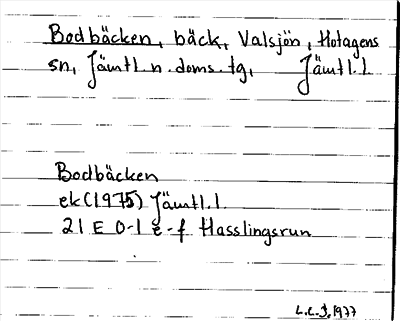 Bodbäcken, bäck, Valsjön, Hotagens
sn, Jämtl. n. doms. tg, Jämtl. l.
Bodbäcken
ek (1975) Jämtl. l.
21 E 0-1 e-f Hasslingsrun
L.L. J, 1977